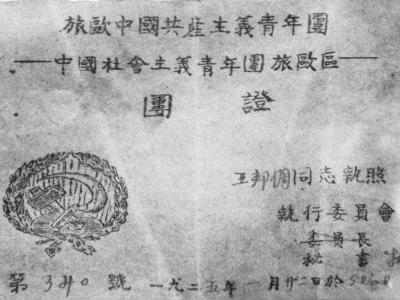 旅歐中國共產主義青年團
中國社會主義青年團旅歐區
團 證
王邦倜同志執照
執行委員會
委員長
秘書
第 340 號 一九二五年一月廿二日於